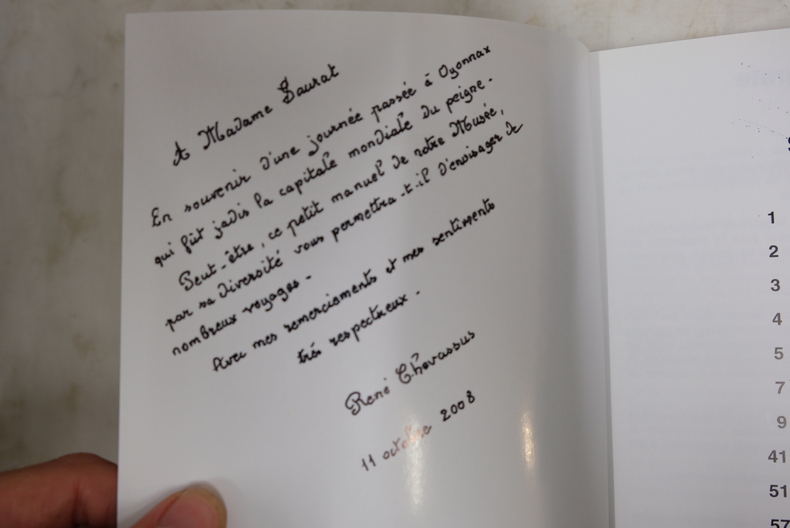 A Madame Saurat
En souvenir d'une journée passée à Oyonnax
qui fût jadis la capitale mondiale du peigne.
Peut-être, ce petit manuel de notre Musée,
par sa diversité vous permettra-t-il d'envisager de
nombreux voyages.
Avec mes remerciements et mes sentiments
très respectueux.
René Chevassus
11 octobre 2008
1
2
3
4
5
7
9
41
51
57